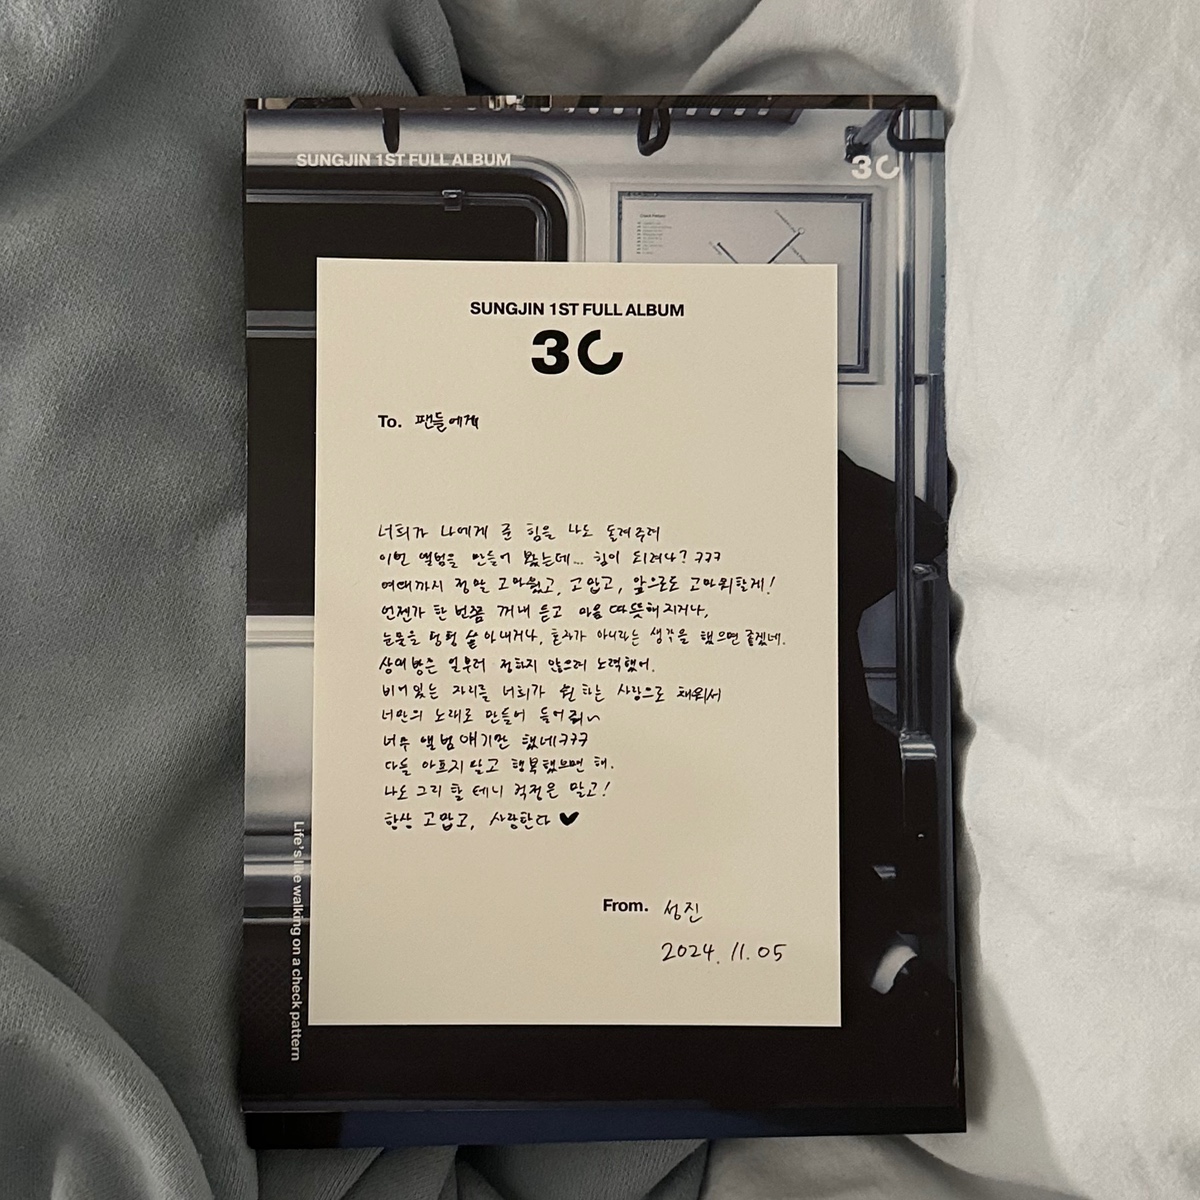 SUNGJIN 1ST FULL ALBUM
3C
SUNGJIN 1ST FULL ALBUM
3C
To. 팬들에게
너희가 나에게 준 힘을 나도 돌려주려
이번 앨범을 만들어 봤는데... 힘이 되려나? ㅋㅋㅋ
여태까지 정말 고마웠고, 고맙고, 앞으로도 고마워할게!
언젠가 한 번쯤 꺼내 듣고 마음 따뜻해지거나,
눈물을 펑펑 쏟아내거나, 혼자가 아니라는 생각을 했으면 좋겠네.
상대방은 일부러 정하지 않으려 노력했어.
비어있는 자리를 너희가 원하는 사랑으로 채워서
너만의 노래로 만들어 들어줘~
너무 앨범 얘기만 했네 ㅋㅋㅋ
다들 아프지 말고 행복했으면 해.
나도 그리 할 테니 걱정은 말고!
항상 고맙고, 사랑한다 ♥
From. 성진
2024. 11. 05
Life's like walking on a check pattern